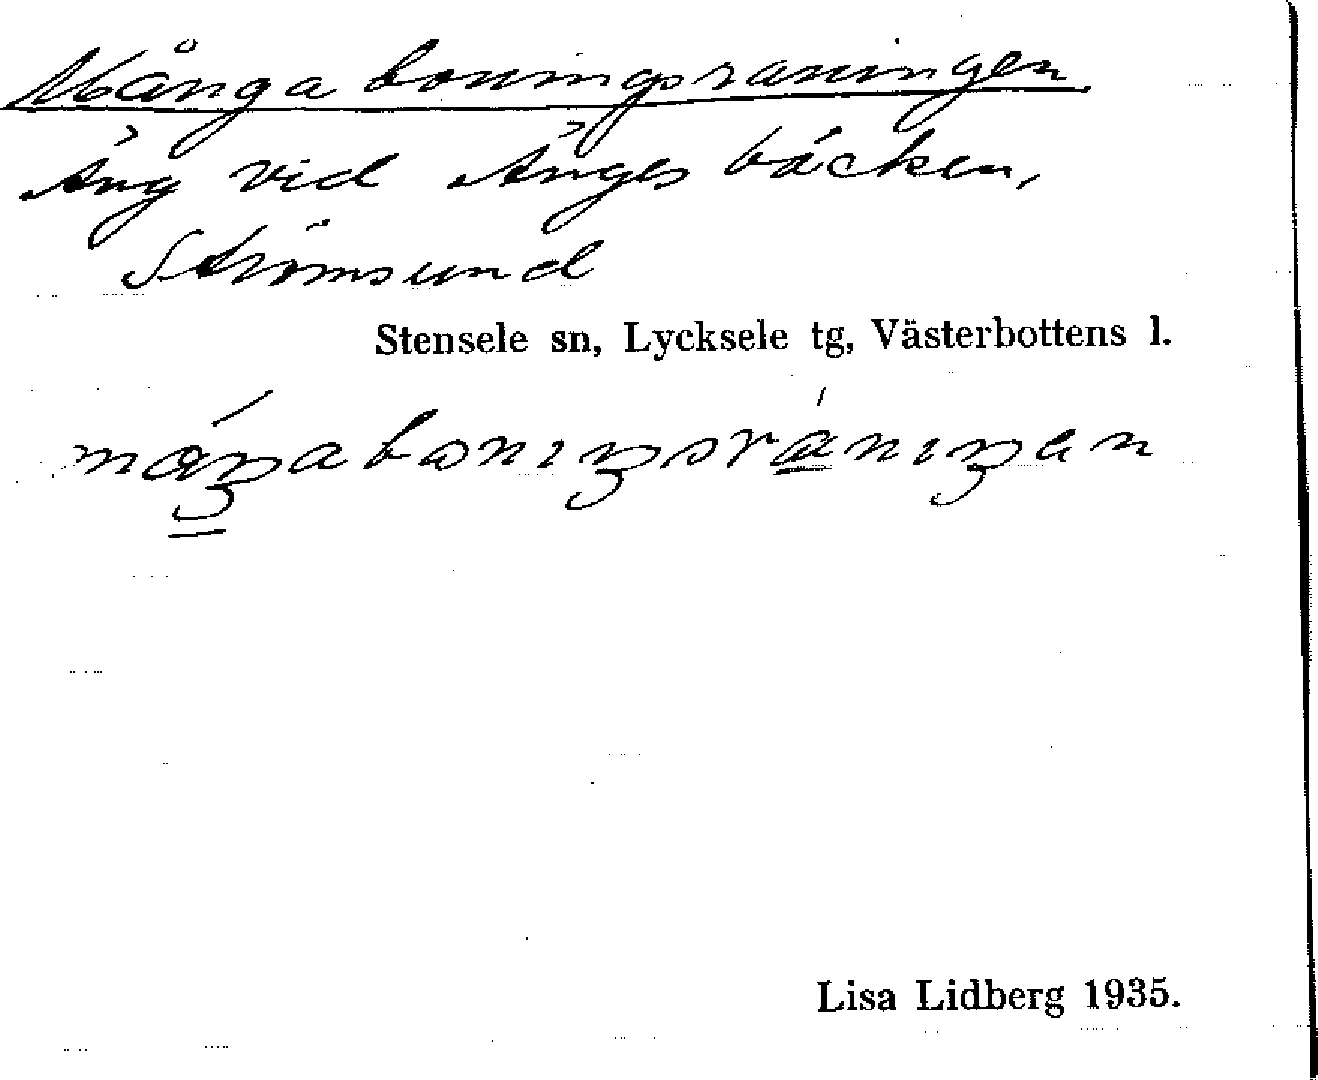 Många boningsraningen
Äng vid Ängesbäcken,
Strömsund
Stensele sn, Lycksele tg, Västerbottens l.
måŋabonıŋsrànıŋen
Lisa Lidberg 1935.